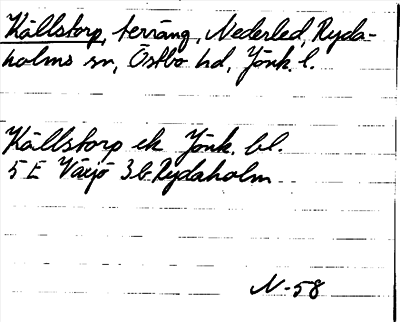 Källstorp, terräng, Nederled, Ryda-
holms sn, Östbo hd, Jönk. l.
Källstorp ek Jönk. bl.
5 E Växjö 3 b Rydaholm
N-58